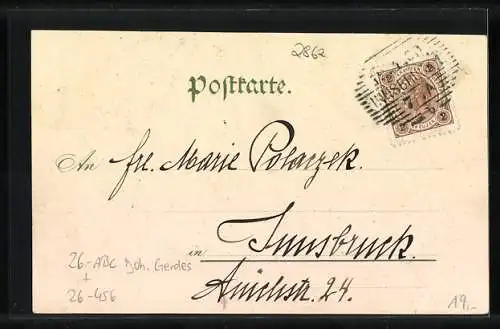 2862
Postkarte.
An frl. Marie Polaczek.
in Innsbruck.
Anichstr. 24.
26.-ABC Joh. Gerdes
+
26-456
19,-